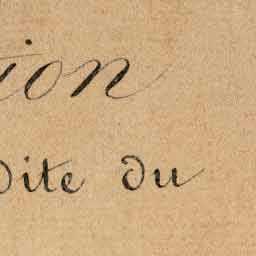 ion
dite du